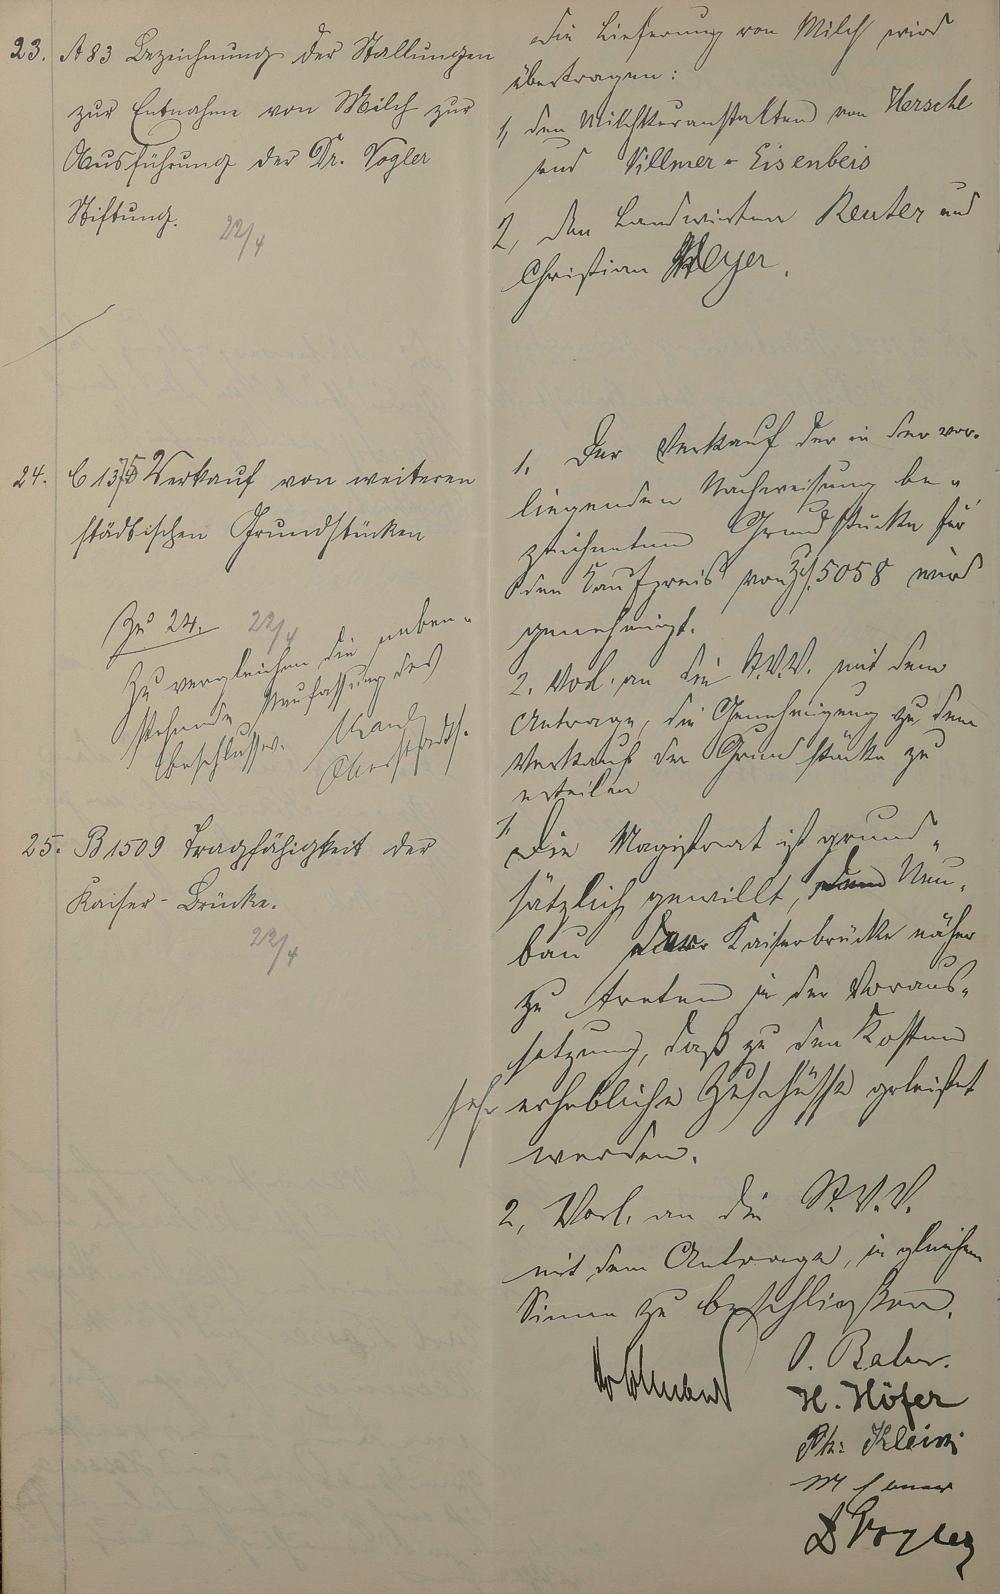 23. A 83 Bezeichnung der Stallungen
zur Entnahme von Milch zur
Ausführung der Dr. Vogler
Stiftung.
22/4
die Lieferung von Milch wird
übertragen:
1, den Milchkuranstalten von Hersche
und Villmer-Eisenbeis
2, den Landwirten Reuter und
Christian Meyer.
24. C 1375 Verkauf von weiteren
städtischen Grundstücken
22/4
Zu 24.
Zu vergleichen die neben-
stehende Neufassung des
Beschlusses.
Obersekretär.
1. Der Verkauf der in der vor-
liegenden Nachweisung be-
zeichneten Grundstücke für
den Kaufpreis von 5058 wird
genehmigt.
2. Vorl. an die St.V.V. mit dem
Antrage, die Genehmigung zu dem
Verkauf der Grundstücke zu
erteilen
25. B 1509 Tragfähigkeit der
Kaiser-Brücke.
22/4
1,
Der Magistrat ist grund-
sätzlich gewillt, dem Neu-
bau der Kaiserbrücke näher
zu treten in der Voraus-
setzung, daß zu den Kosten
sehr erhebliche Zuschüsse geleistet
werden.
2, Vorl. an die St.V.V.
mit dem Antrage, in gleichem
Sinne zu beschließen.
H. Höfer
Ph. Klein
D Vogler